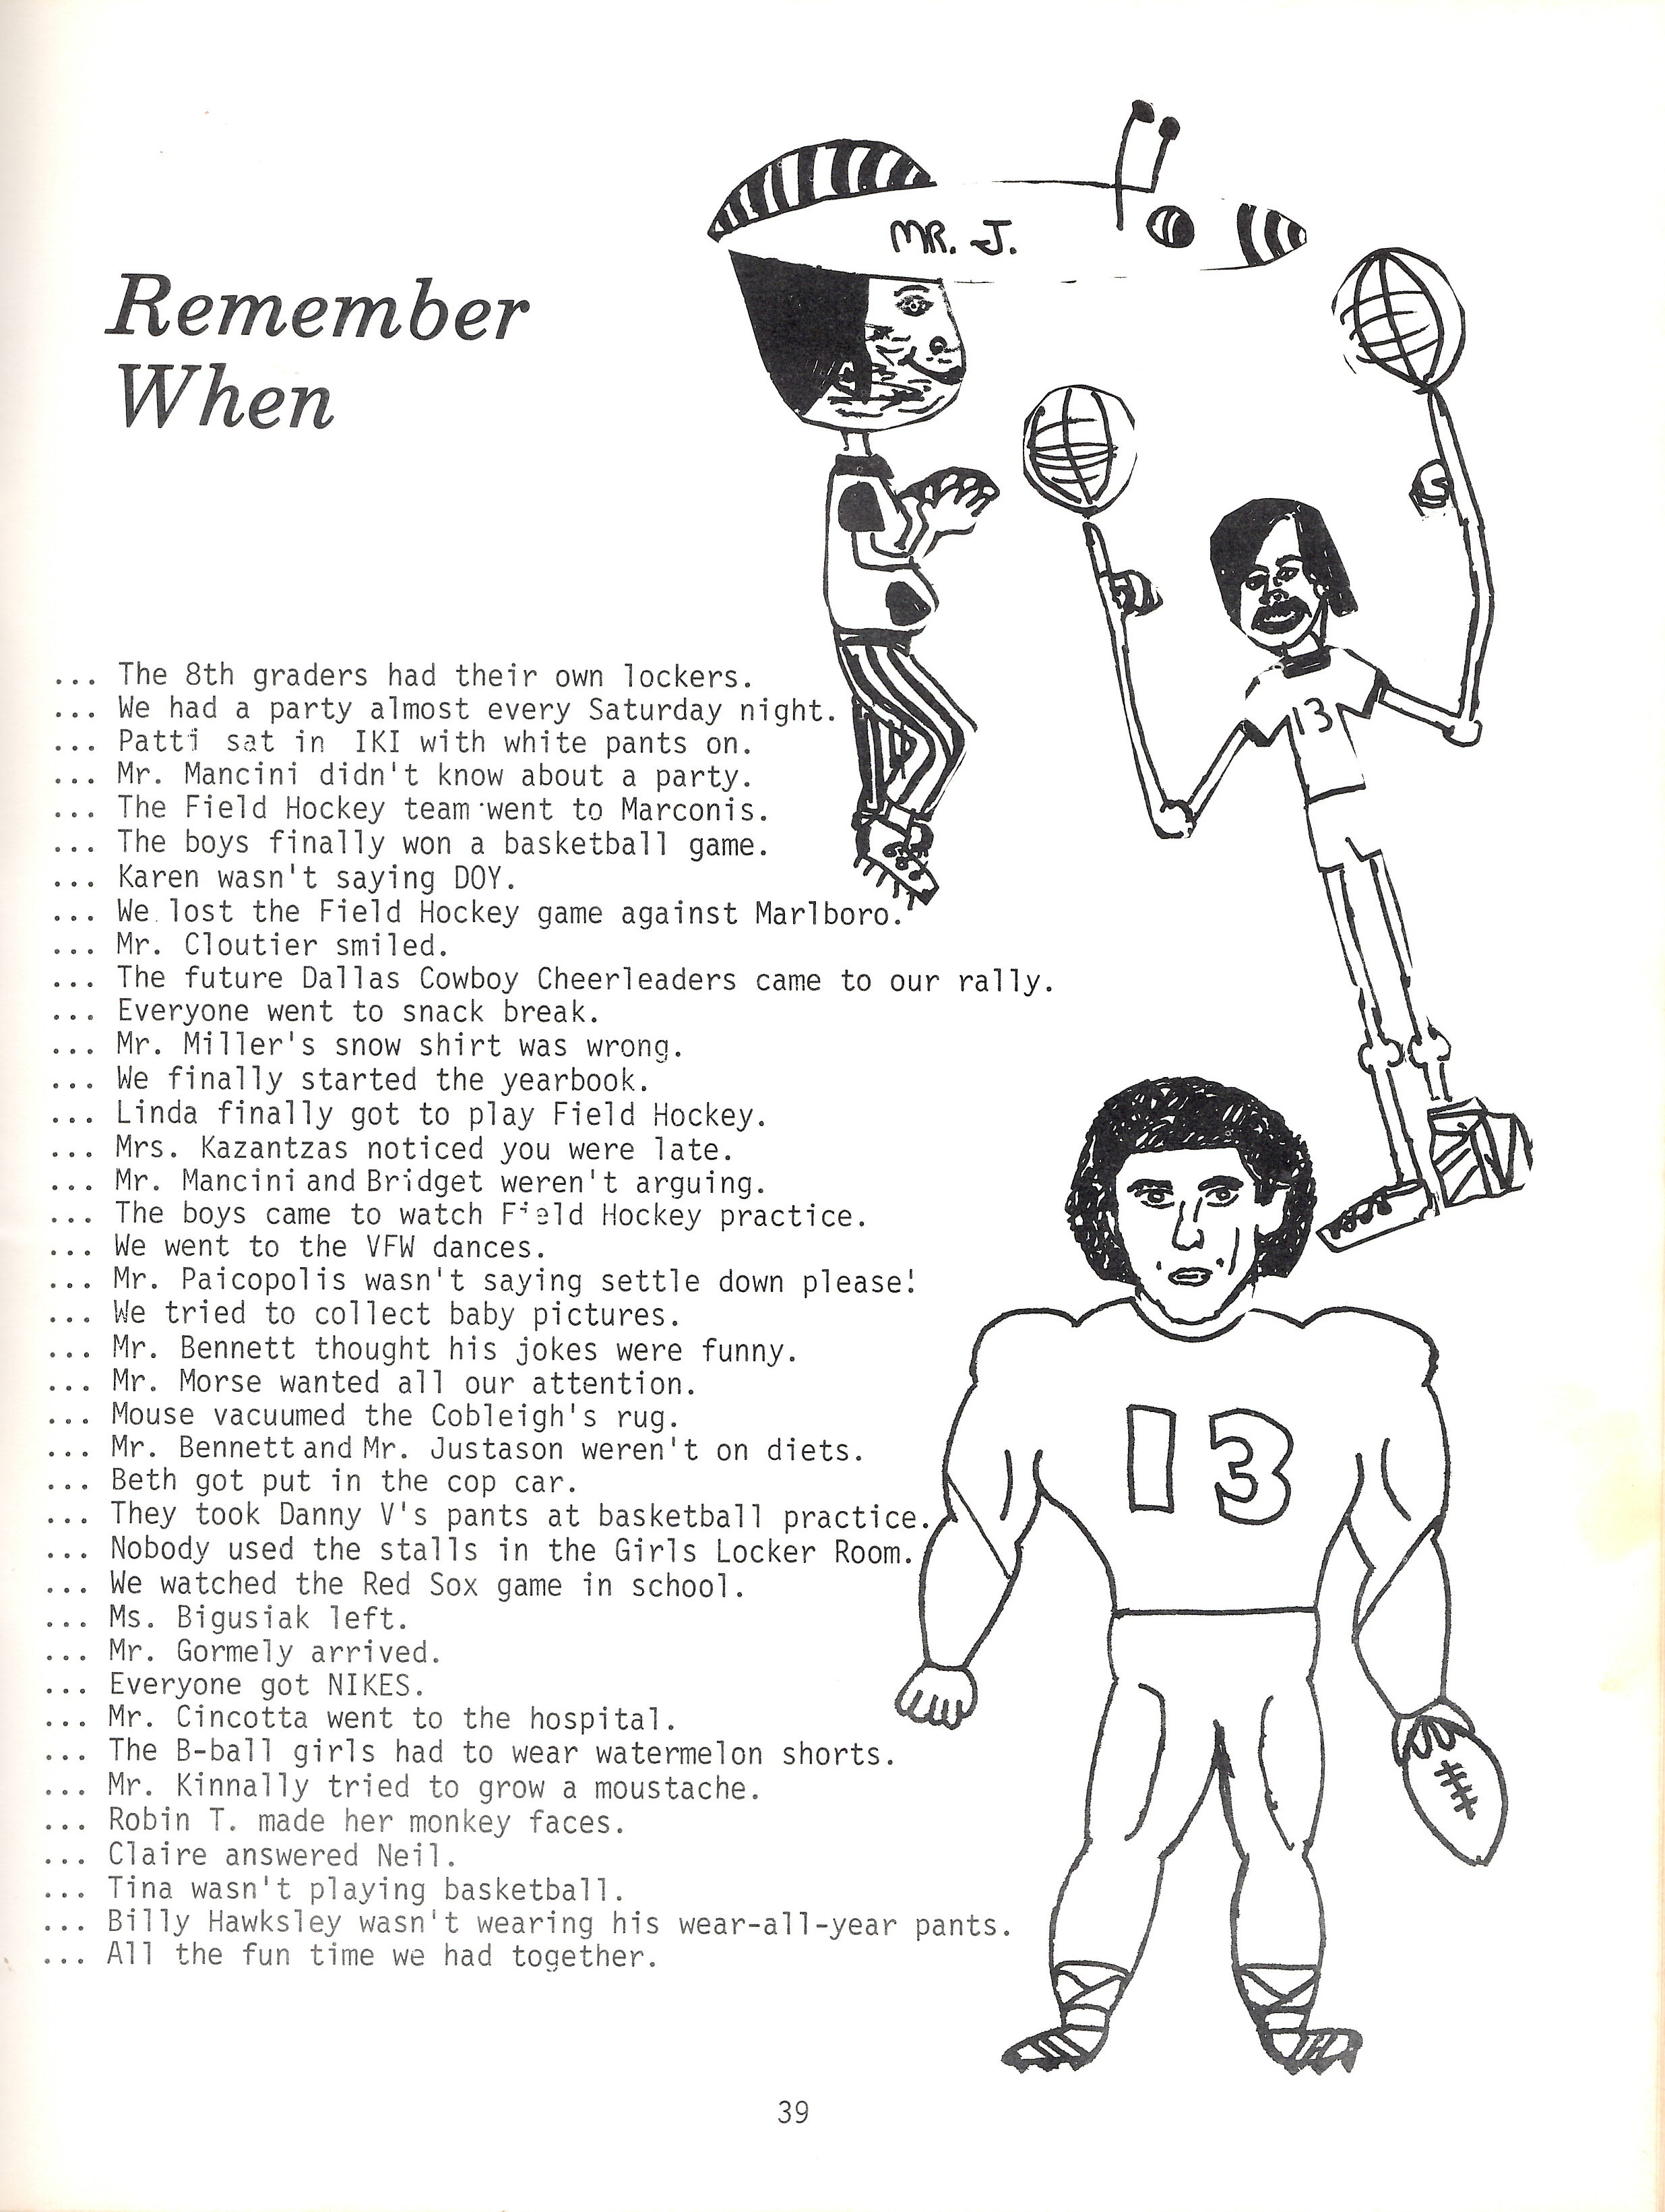 MR. J.
Remember
When
13
... The 8th graders had their own lockers.
... We had a party almost every Saturday night.
... Patti sat in IKI with white pants on.
... Mr. Mancini didn't know about a party.
... The Field Hockey team went to Marconis.
... The boys finally won a basketball game.
... Karen wasn't saying DOY.
... We lost the Field Hockey game against Marlboro.
... Mr. Cloutier smiled.
... The future Dallas Cowboy Cheerleaders came to our rally.
... Everyone went to snack break.
... Mr. Miller's snow shirt was wrong.
... We finally started the yearbook.
... Linda finally got to play Field Hockey.
... Mrs. Kazantzas noticed you were late.
... Mr. Mancini and Bridget weren't arguing.
... The boys came to watch Field Hockey practice.
... We went to the VFW dances.
... Mr. Paicopolis wasn't saying settle down please!
... We tried to collect baby pictures.
... Mr. Bennett thought his jokes were funny.
... Mr. Morse wanted all our attention.
... Mouse vacuumed the Cobleigh's rug.
... Mr. Bennett and Mr. Justason weren't on diets.
... Beth got put in the cop car.
... They took Danny V's pants at basketball practice.
... Nobody used the stalls in the Girls Locker Room.
... We watched the Red Sox game in school.
... Ms. Bigusiak left.
... Mr. Gormely arrived.
... Everyone got NIKES.
... Mr. Cincotta went to the hospital.
... The B-ball girls had to wear watermelon shorts.
... Mr. Kinnally tried to grow a moustache.
... Robin T. made her monkey faces.
... Claire answered Neil.
... Tina wasn't playing basketball.
... Billy Hawksley wasn't wearing his wear-all-year pants.
... All the fun time we had together.
13
39